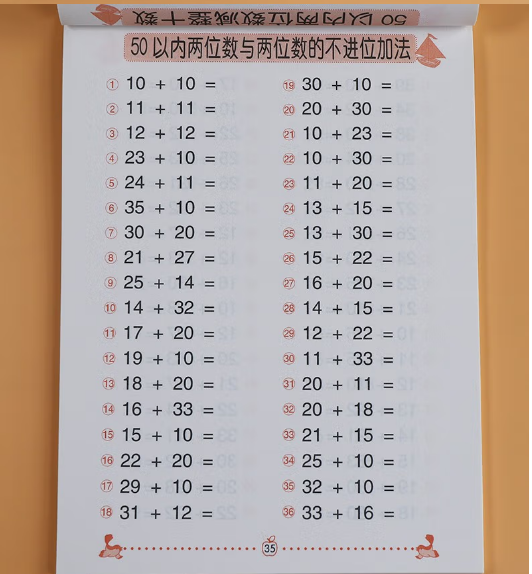 50以内两位数减整十数
50以内两位数与两位数的不进位加法
① 10 + 10 =
② 11 + 11 =
③ 12 + 12 =
④ 23 + 10 =
⑤ 24 + 11 =
⑥ 35 + 10 =
⑦ 30 + 20 =
⑧ 21 + 27 =
⑨ 25 + 14 =
⑩ 14 + 32 =
⑪ 17 + 20 =
⑫ 19 + 10 =
⑬ 18 + 20 =
⑭ 16 + 33 =
⑮ 15 + 10 =
⑯ 22 + 20 =
⑰ 29 + 10 =
⑱ 31 + 12 =
⑲ 30 + 10 =
⑳ 20 + 30 =
㉑ 10 + 23 =
㉒ 10 + 30 =
㉓ 11 + 20 =
㉔ 13 + 15 =
㉕ 13 + 30 =
㉖ 15 + 22 =
㉗ 16 + 20 =
㉘ 14 + 15 =
㉙ 12 + 22 =
㉚ 11 + 33 =
㉛ 20 + 11 =
㉜ 20 + 18 =
㉝ 21 + 15 =
㉞ 25 + 10 =
㉟ 32 + 10 =
㊱ 33 + 16 =
35